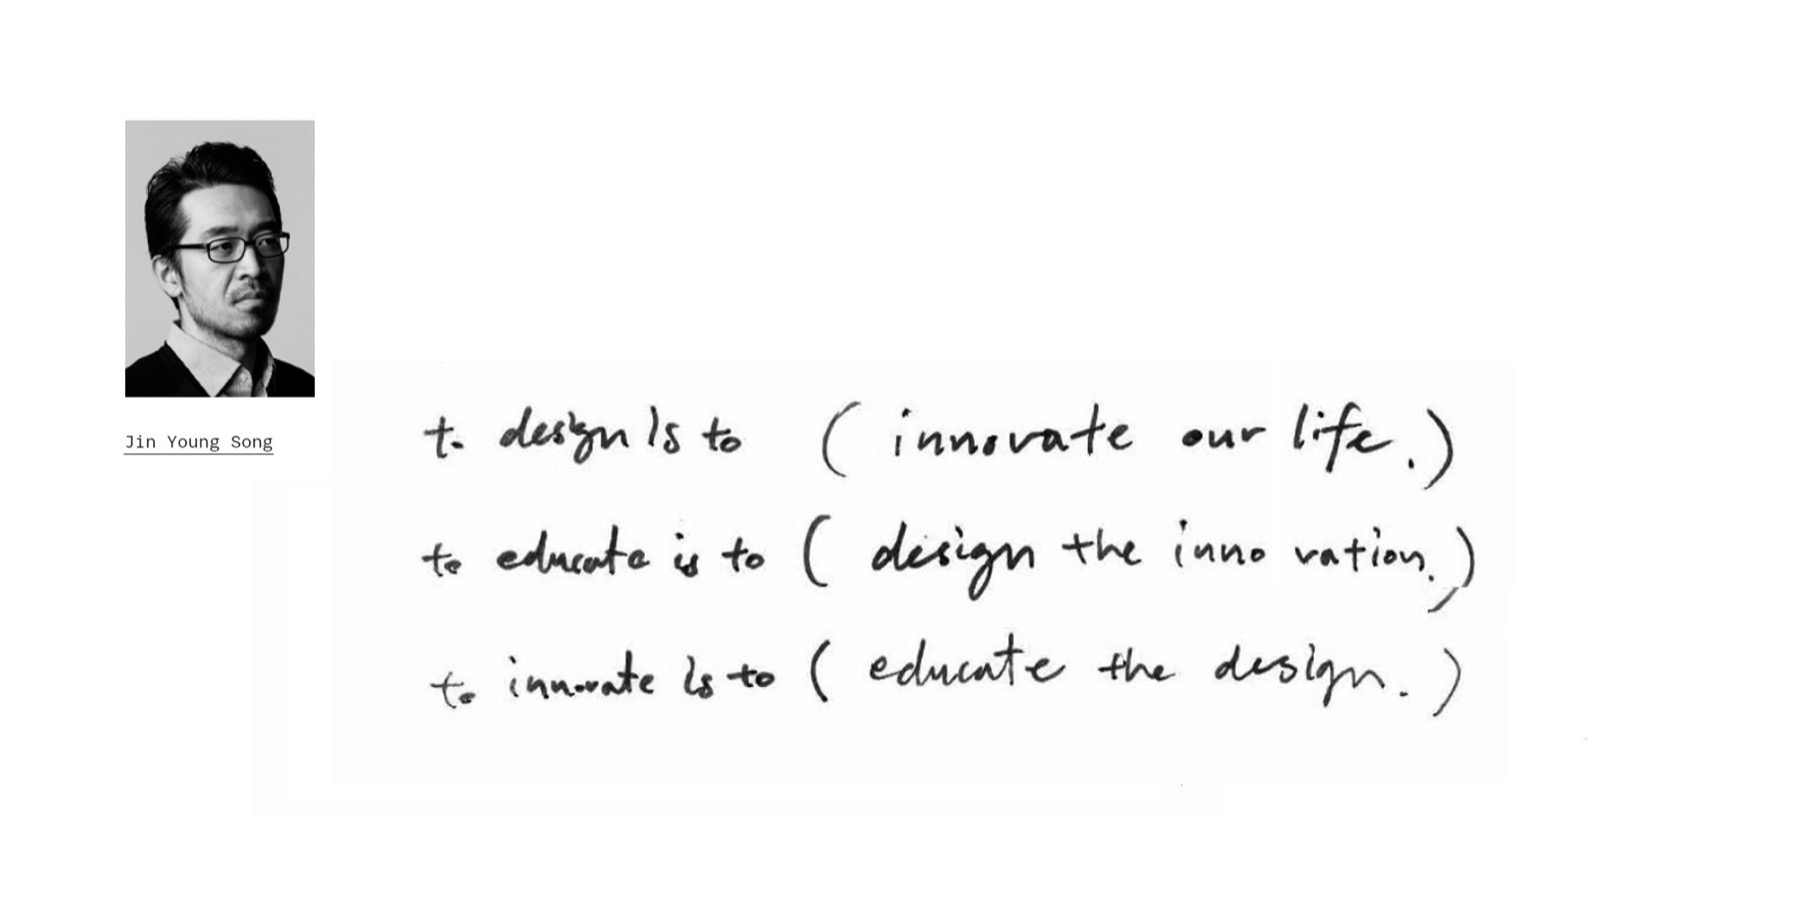 Jin Young Song
to design is to ( innovate our life. )
to educate is to ( design the innovation. )
to innovate is to ( educate the design. )